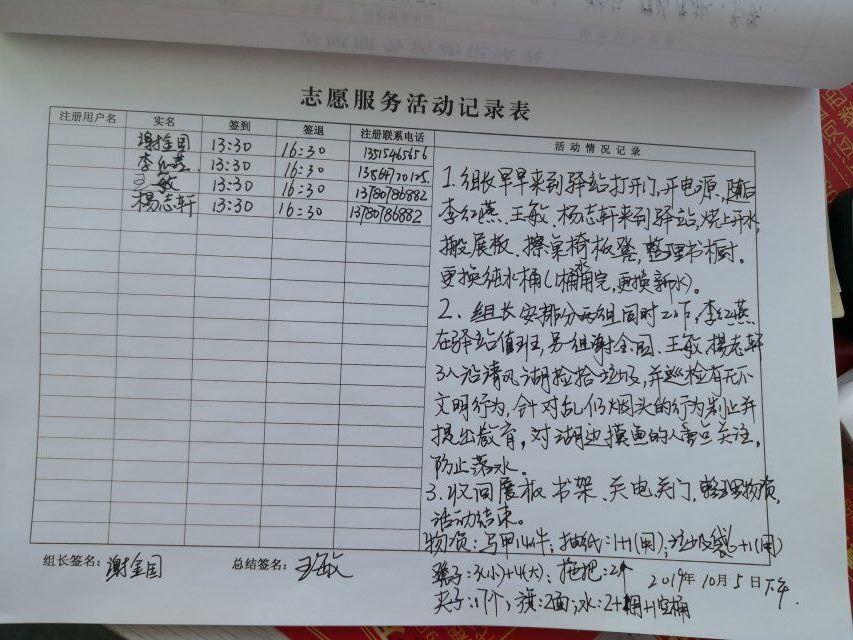 志愿服务活动记录表
注册用户名 实名 签到 签退 注册联系电话 活动情况记录
谢金国 13:30 16:30 13515465656
李红燕 13:30 16:30 13864720125
王敏 13:30 16:30 13780786882
杨志轩 13:30 16:30 13780786882
1.组长早早来到驿站打开门、开电源,随后
李红燕、王敏、杨志轩来到驿站,烧上开水,
搬展板、擦桌椅板凳,整理书柜。
更换纯水桶(1桶水用完,更换新水)。
2. 组长安排分两组同时工作,李红燕
在驿站值班,另组谢金国、王敏、杨志轩
3人沿清风湖捡拾垃圾,并巡检有无不
文明行为,针对乱仍烟头的行为制止并
提出教育,对湖边摸鱼的人重点关注,
防止落水。
3.收回展板、书架、关电、关门,整理物资,
活动结束。
物资:马甲14件;抽纸:1+1(用);垃圾袋:+1(用)
凳子:3(小)+4(大);拖把:2个
夹子:17个;旗:2面;水:2+1用+1空桶
组长签名:谢金国 总结签名:王敏 2019年10月5日下午